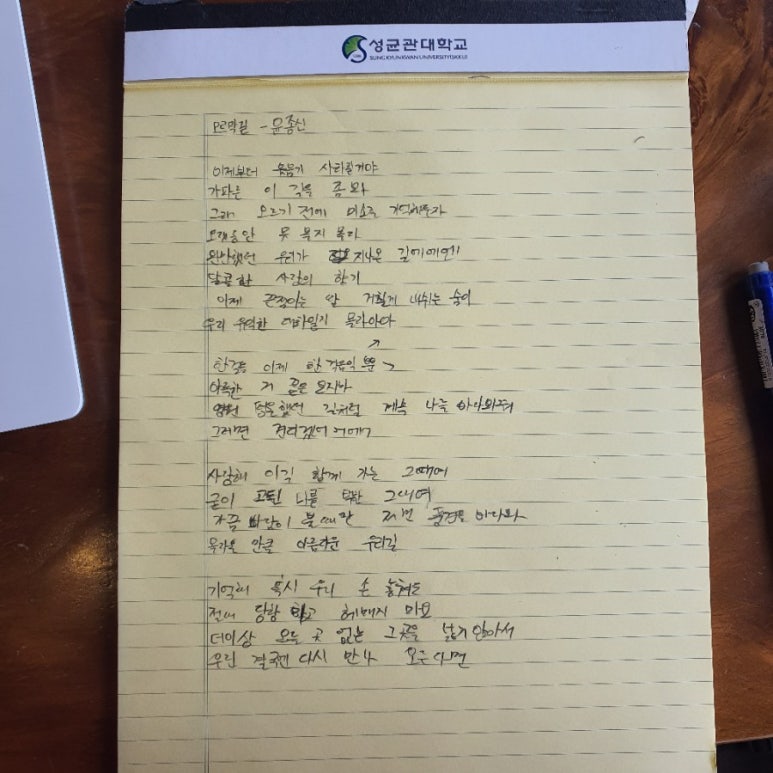 성균관대학교
SUNGKYUNKWAN UNIVERSITY(SKKU)
오르막길 - 윤종신
이제부터 웃음기 사라질거야
가파른 이 길을 좀 봐
그래 오르기 전에 미소를 기억해두자
오랫동안 못 볼지 몰라
완만했던 우리가 지나온 길엔
달콤한 사랑의 향기
이제 끈적이는 땀 거칠게 내쉬는 숨이
우리 유일한 대화일지 몰라
한걸음 이제 한 걸음일 뿐
아득한 저 끝은 보지마
평온했던 길처럼 계속 나를 바라봐줘
그러면 견디겠어
사랑해 이길 함께 가는 그대여
굳이 고된 나를 택한 그대여
가끔 바람이 불 때만 저 먼 풍경을 바라봐
올라온 만큼 아름다운 우리길
기억해 혹시 우리 손 놓쳐도
절대 당황하고 헤매지 마요
더이상 오를 곳 없는 그곳은 넓지 않아서
우린 결국엔 다시 만나 오른다면